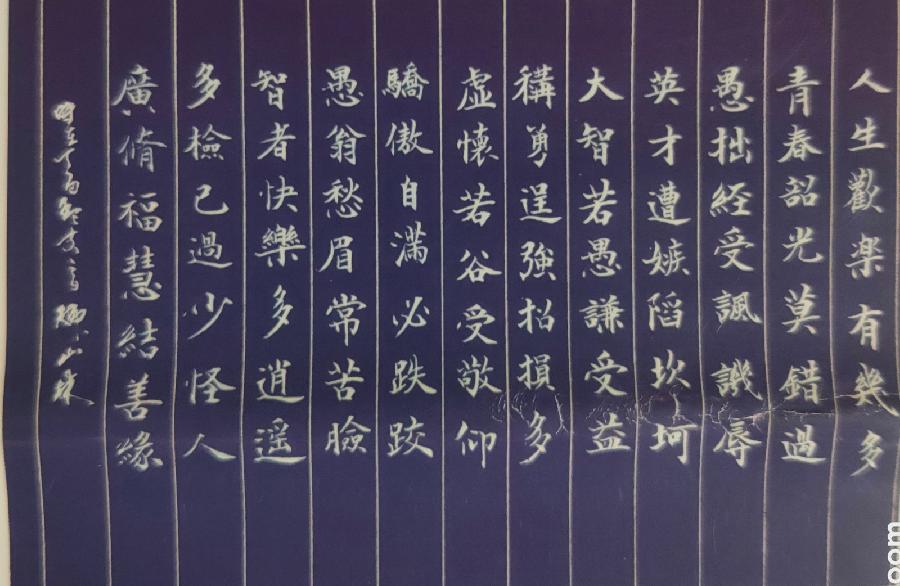 人生歡楽有幾多
青春韶光莫錯過
愚拙経受諷譏辱
英才遭嫉蹈坎坷
大智若愚謙受益
稱勇逞強招損多
虛懷若谷受敬仰
驕傲自滿必跌跤
愚翁愁眉常苦臉
智者快樂多逍遥
多檢己過少怪人
廣脩福慧結善緣
com